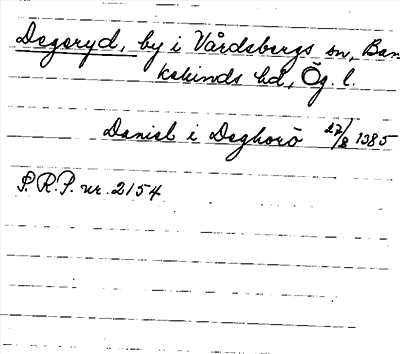 Degeryd, by i Vårdsbergs sn, Ban
kekinds hd, Ög. l.
Daniel i Deghorö 27/8 1385
S.R.P. nr. 2154